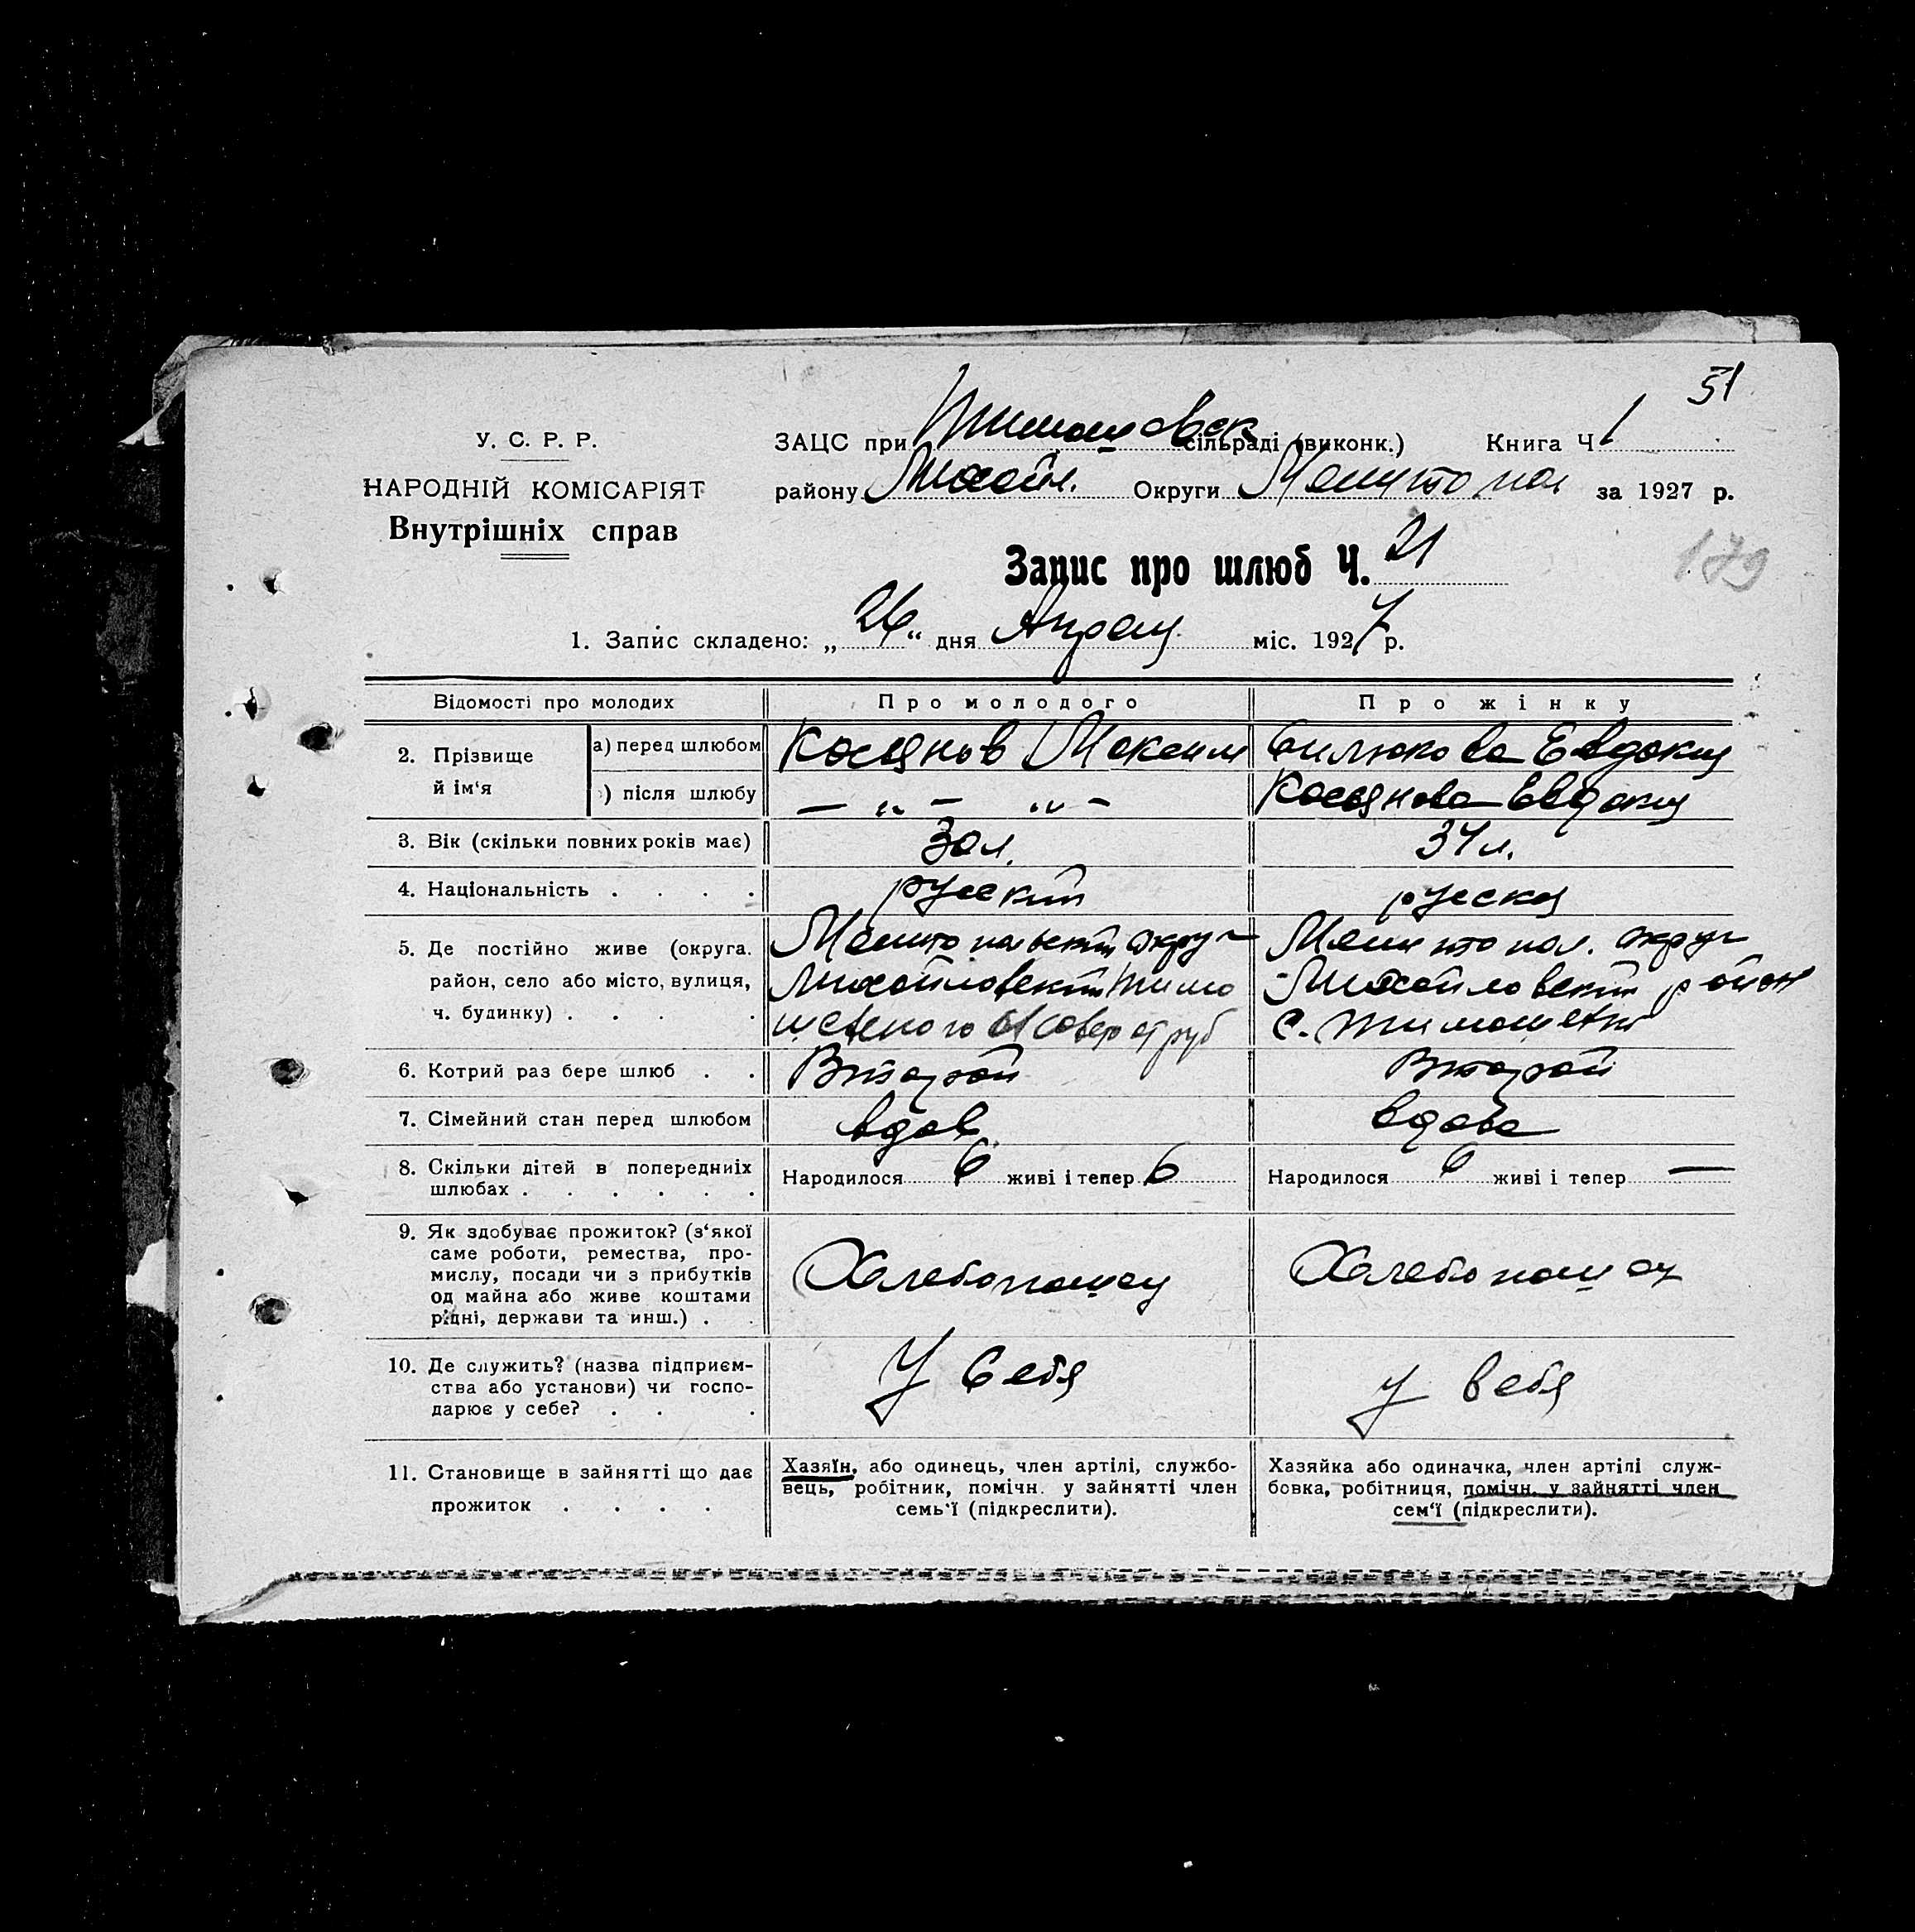 51
У. С. Р. Р.
НАРОДНІЙ КОМІСАРІЯТ
Внутрішніх справ
ЗАЦС при Тимошовск сільраді (виконк.) Книга Ч 1
району Михайл. Округи Мелитопол за 1927 р.
Запис про шлюб Ч. 21
179
1. Запис складено: „26“ дня Апреля міс. 1927 р.
Відомості про молодих Про молодого Про жінку
2. Прізвище й ім‘я
а) перед шлюбом Косянов Максим Билюкова Евдокия
) після шлюбу — „ — „ — Косянова Евдокия
3. Вік (скільки повних років має) 30 л. 34 л.
4. Національність . . . . русский руская
5. Де постійно живе (округа. район, село або місто, вулиця, ч. будинку) . . . .
Мелитопольский округ
Михайловский Тимо
Мелитопол. округ
Михайловский район
с. Тимошевка
6. Котрий раз бере шлюб . . Второй Второй
7. Сімейний стан перед шлюбом вдов вдова
8. Скільки дітей в попередніх шлюбах . . . . . .
Народилося 6 живі і тепер 6
Народилося 6 живі і тепер —
9. Як здобуває прожиток? (з‘якої
саме роботи, ремества, про-
мислу, посади чи з прибутків
од майна або живе коштами
рідні, держави та инш.) . .
Хлебопашец
Хлебопашец
10. Де служить? (назва підприєм-
ства або установи) чи госпо-
дарює у себе? . . .
У себя
У себя
11. Становище в зайнятті що дає
прожиток . . . .
Хазяїн, або одинець, член артілі, службо-
вець, робітник, помічн. у зайнятті член
семь‘ї (підкреслити).
Хазяйка або одиначка, член артілі служ-
бовка, робітниця, помічн. у зайнятті член
сем‘ї (підкреслити).